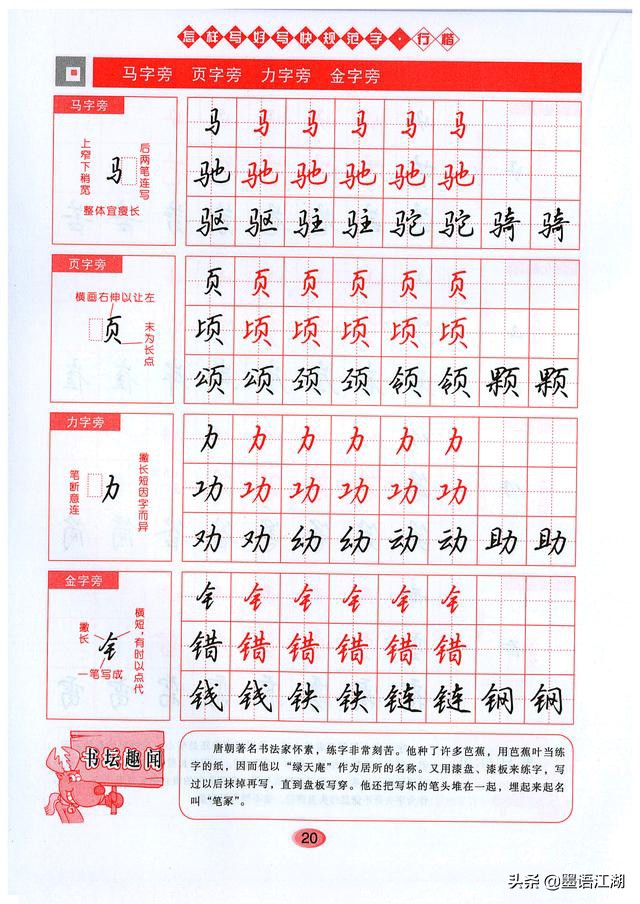 怎样写好写快规范字·行楷
马字旁 页字旁 力字旁 金字旁
马字旁
上窄下稍宽
马
后两笔连写
整体宜瘦长
马 马 马 马 马 马
驰 驰 驰 驰 驰 驰
驱 驱 驻 驻 驼 驼 骑 骑
页字旁
横画右伸以让左
页
末为长点
页 页 页 页 页 页
顷 顷 顷 顷 顷 顷
颂 颂 颈 颈 领 领 颗 颗
力字旁
笔断意连
力
撇长短因字而异
力 力 力 力 力 力
功 功 功 功 功 功
劝 劝 幼 幼 动 动 助 助
金字旁
撇长
钅
横短，有时以点代
一笔写成
钅 钅 钅 钅 钅 钅
错 错 错 错 错 错
钱 钱 铁 铁 链 链 钢 钢
书坛趣闻
唐朝著名书法家怀素，练字非常刻苦。他种了许多芭蕉，用芭蕉叶当练
字的纸，因而他以“绿天庵”作为居所的名称。又用漆盘、漆板来练字，写
过以后抹掉再写，直到盘板写穿。他还把写坏的笔头堆在一起，埋起来起名
叫“笔冢”。
20
头条@墨语江湖